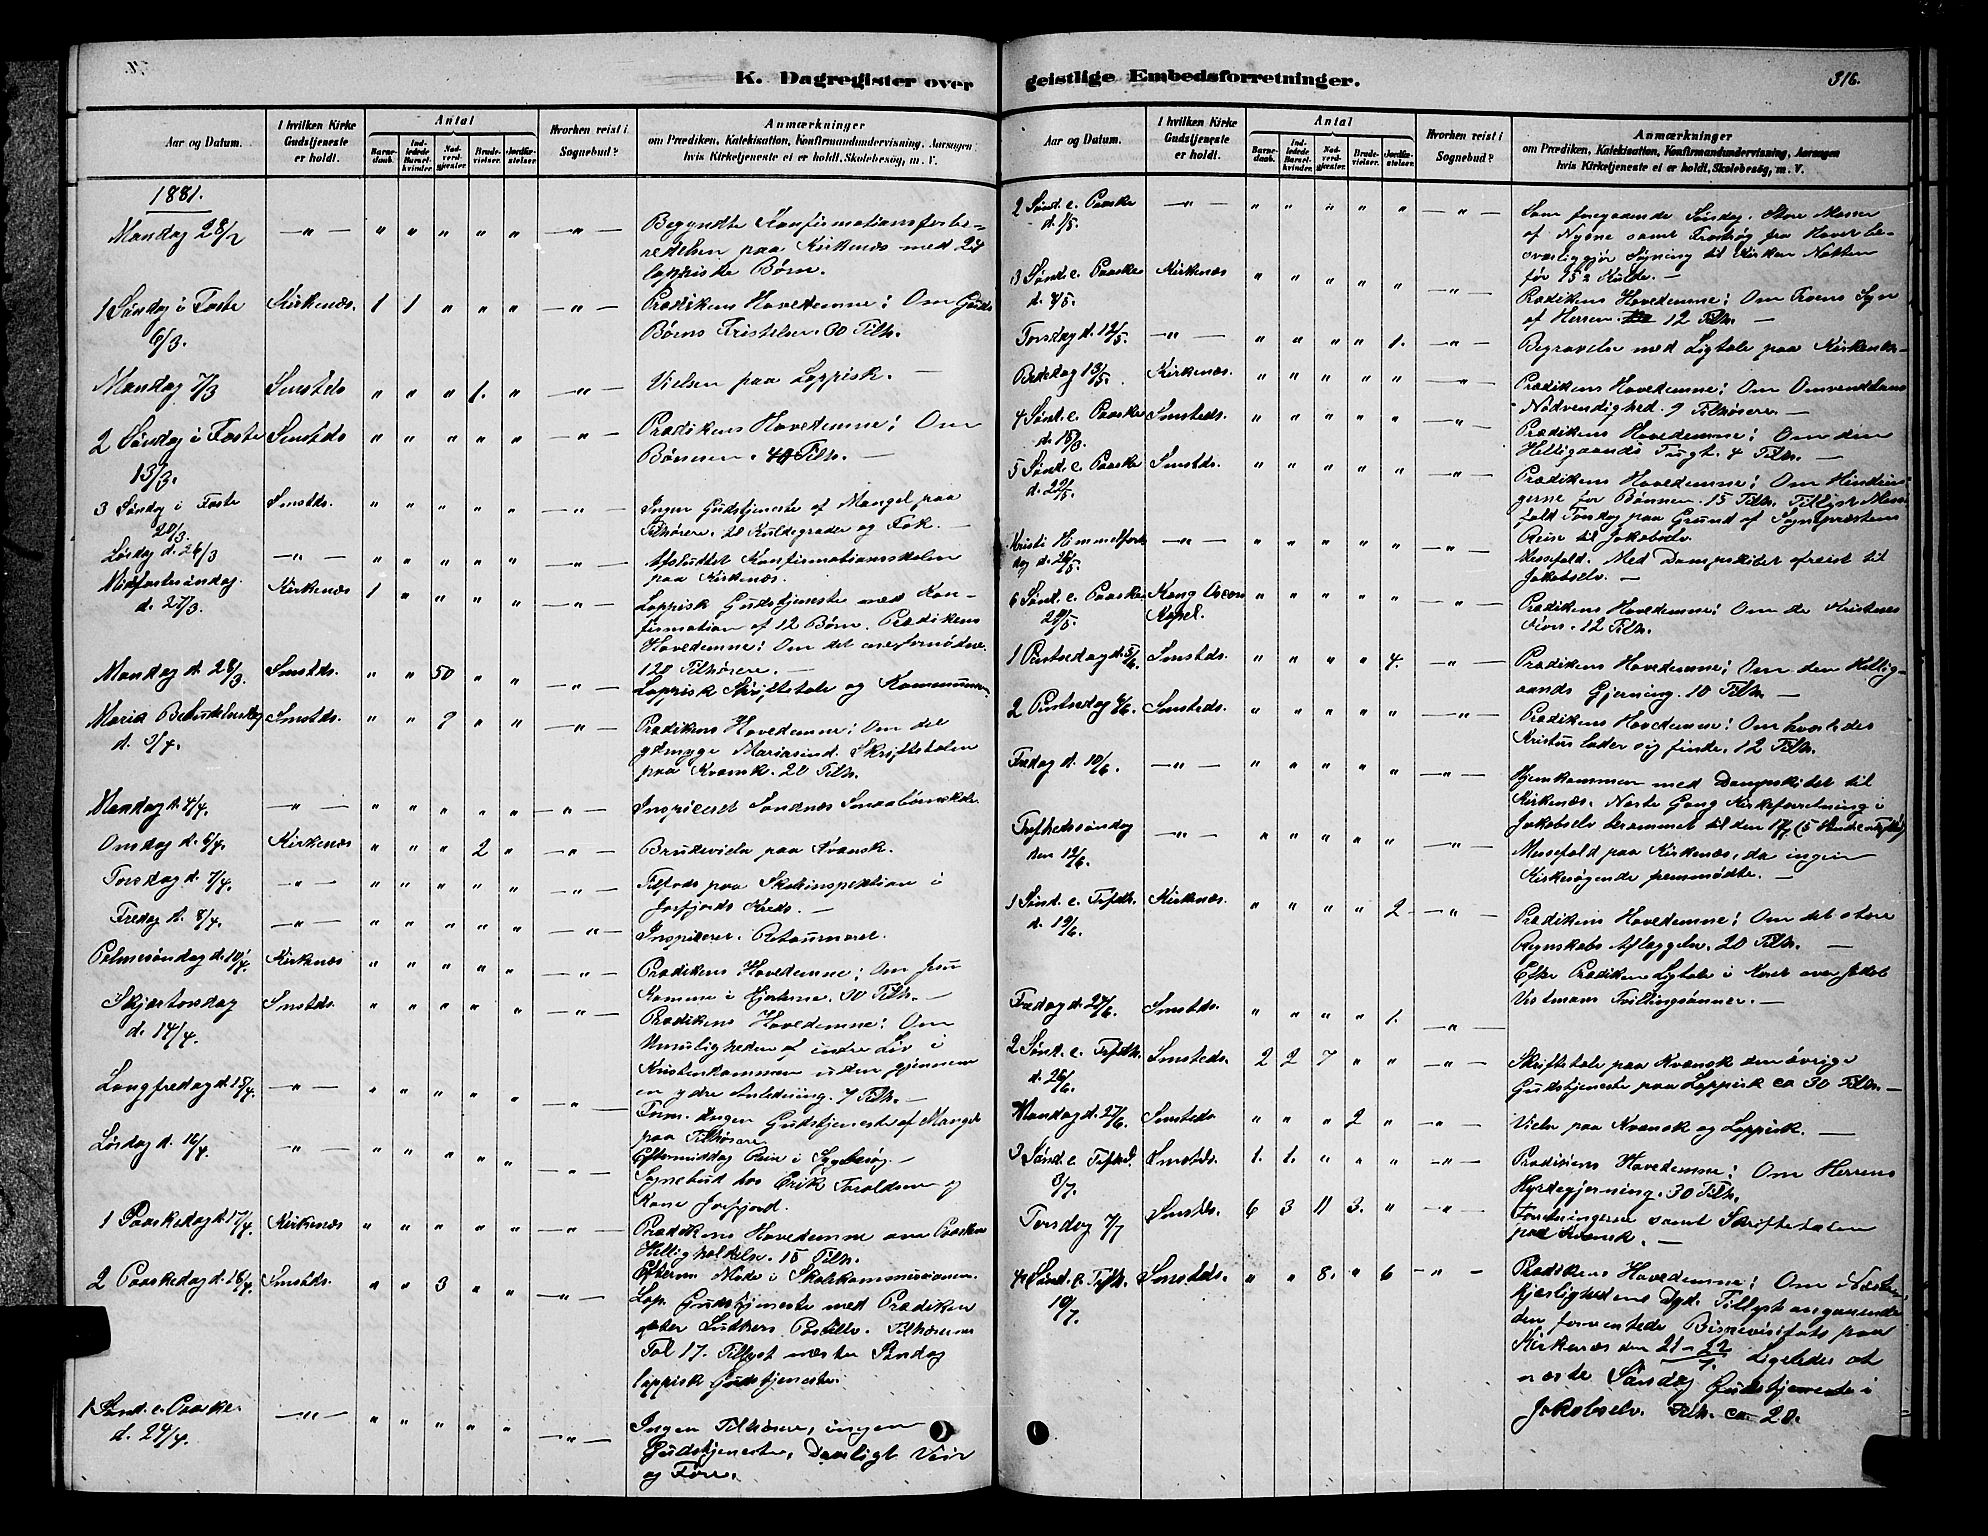 K. Dagregister over
geistlige Embedsforretninger.
316.
Aar og Datum.
I hvilken Kirke Gudstjeneste er holdt.
Antal
Barne-daab.
Ind-ledede Barsel-kvinder.
Nad-verd-gjæster.
Brude-vielser.
Jordfæ-stelser.
Hvorhen reist i Sognebud?
Anmærkninger
om Prædiken, Katekisation, Konfirmandundervisning, Aarsagen
hvis Kirketjeneste ei er holdt, Skolebesøg, m. V.
1881.
Mandag 28/2 — " — " " " " " — " — Begyndte Konfirmationsforbe-
redelsen paa Kirkenæs med 24
lappiske Børn.
1 Søndag i Faste Kirkenæs. 1 1 " " " — " — Prædikens Hovedemne: Om Guds
6/3. Børns Fristelser. 60 Tilh.
Mandag 7/3 Smstds " " " 1. " — " — Vielsen paa Lappisk. —
2 Søndag i Faste Smstds " " " " " — " — Prædikens Hovedemne: Om
13/3. Bønnen. 40 Tilh. —
3 Søndag i Faste Smstds. " " " " " — " — Ingen Gudstjeneste af Mangel paa
20/3. Tilhørere. 20 Kuldegrader og Fok. —
Lørdag d. 26/3 — " — " " " " " — " — Afsluttet Konfirmationsskolen
paa Kirkenæs.
Midfastesøndag Kirkenæs 1 " " " " — " — Lappisk Gudstjeneste med Kon-
d. 27/3. firmation af 12 Børn. Prædikens
Hovedemne: Om det ene fornødne.
120 Tilhørere. —
Mandag d. 28/3 Smstds. " " 50 " " — " — Lappisk Skriftetale og Kommunion.
Maria Bebudelsesdag Smstds. " " 9 " " — " — Prædikens Hovedemne: Om det
d. 3/4. ydmyge Mariasind. Skriftetalen
paa Kvænsk. 20 Tilh.
Mandag d. 4/4. — " — " " " " " — " — Inspiceret Sandnæs Smaabørnskole
Onsdag d. 6/4. Kirkenæs " " " 2 " — " — Brudevielse paa Kvænsk.
Torsdag d. 7/4. — " — " " " " " — " — Tilfods paa Skoleinspektion i
Jarfjords Kreds. —
Fredag d. 8/4. — " — " " " " " — " — Inspiceret. Retourneret.
Palmesøndag d. 10/4. Kirkenæs " " " " " — " — Prædikens Hovedemne: Om Jesu
Komme i Hjerterne. 30 Tilh. —
Skjærtorsdag Smstds. " " " " " — " — Prædikens Hovedemne: Om
d. 14/4. Umuligheden af indre Liv i
Kristendommen uden gjennem
en ydre Anledning. 7 Tilh. —
Langfredag d. 15/4. — " — " " " " " — " — Ingen Gudstjeneste af Mangel
paa Tilhørere
Lørdag d. 16/4. — " — " " " " " — " — Eftermiddag Reise i Sygebesøg. —
Sognebud hos Erik Toraldsen og
Kone Jarfjord.
1 Paaskedag d. 17/4. Kirkenæs " " " " " — " — Prædikens Hovedemne om Paaskens
Helligholdelse. 15 Tilh.
2 Paaskedag d. 18/4. Smstds. " " 3 " " — " — Efterm. Møde i Skolekommissionen.
Lap. Gudstjeneste med Prædiken
efter Luthers Postille. Tilhørernes
Tal 17. Tillyst næste Søndag
lappisk Gudstjeneste.
1 Sønd. e. Paaske — " — " " " " " — " — Ingen Tilhørere, ingen
d. 24/4. Gudstjeneste. Daarligt Veir
og Føre.
Aar og Datum.
I hvilken Kirke Gudstjeneste er holdt.
Antal
Barne-daab.
Ind-ledede Barsel-kvinder.
Nad-verd-gjæster.
Brude-vielser.
Jordfæ-stelser.
Hvorhen reist i Sognebud?
Anmærkninger
om Prædiken, Katekisation, Konfirmandundervisning, Aarsagen
hvis Kirketjeneste ei er holdt, Skolebesøg, m. V.
2 Sønd. e. Paaske — " — " " " " " — " — Som foregaaende Søndag. Store Masser
d. 1/5. af Nysne samt Frostrøg fra Havet be-
sværliggjør Søgning til Kirken Natten
før 15 2 Kulde. —
3 Sønd. e. Paaske Kirkenæs " " " " " — " — Prædikens Hovedemne: Om Troens Syn
d. 8/5. af Herren. 12 Tilh. —
Torsdag d. 12/5. — " — " " " " 1. — " — Begravelse med Ligtale paa Kirkenæs. —
Bededag 13/5. Kirkenæs. " " " " " — " — Prædikens Hovedemne: Om Omvendelsens
Nødvendighed. 9 Tilhørere. —
4 Sønd. e. Paaske Smsteds. " " " " " — " — Prædikens Hovedemne: Om den
d. 15/5. Helligaands Tugt. 4 Tilh. —
5 Sønd. e. Paaske Smstds. " " " " " — " — Prædikens Hovedemne: Om Hindrin-
d. 22/5. gerne for Bønnen. 15 Tilh. Tillyst Messe-
fald Torsdag paa Grund af Sognepræstens
Reise til Jakobselv.
Kristi Himmelfarts — " — " " " " " — " — Messefald. Med Dampskibet afreist til
dag d. 26/5. Jakobselv. —
6 Sønd. e. Paaske Kong Oscars " " " " " — " — Prædikens Hovedemne: Om de Kristnes
29/5. Kapel.
12 Tilh.
1 Pintsedag d. 5/6. Smstds. " " " " 4. — " — Prædikens Hovedemne: Om den Hellig-
aands Gjerning. 10 Tilh. —
2 Pintsedag 6/6. Smsteds. " " " " " — " — Prædikens Hovedemne: Om hvorledes
Kristus lader sig finde. 12 Tilh.
Fredag d. 10/6. — " — " " " " " — " — Hjemkommen med Dampskibet til
Kirkenæs. Næste Gang Kirkeforretning i
Jakobselv berammet til den 17/7 (5 Sønd. e. Trefh.)
Trefhedssøndag — " — " " " " " — " — Messefald paa Kirkenæs, da ingen
den 12/6. Kirkesøgende fremmødte. —
1 Sønd. e. Trefdh. Kirkenæs. " " " " 2 — " — Prædikens Hovedemne: Om det store
d. 19/6. Regnskabs Aflæggelse. 20 Tilh. —
Efter Prædiken Ligtale i Koret over Jakob
Vestmans Tvillingsønner. —
Fredag d. 24/6. Smstds. " " " " 1. — " —
2 Sønd. e. Trefdh. Smsteds. 2 2 7 " " — " — Skriftetale paa Kvænsk den øvrige
d. 26/6. Gudstjeneste paa Lappisk ca 30 Tilh. —
Mandag d. 27/6. Smsteds " " " 2 " — " — Vielse paa Kvænsk og Lappisk. —
3 Sønd. e. Trefhd. Smstds. 1. 1. " " " — " — Prædikens Hovedemne: Om Herrens
3/7. Hyrdegjerning. 30 Tilh.
Torsdag 7/7 Smstds. 6 3 11 3. " — " — Forretningerne samt Skriftetalen
paa Kvænsk. —
4 Sønd. e. Trefh. Smstds. " " 8. " 6 — " — Prædikens Hovedemne: Om Næste-
10/7. kjærlighedens Dyd. Tillyst angaaende
den forventede Bispevisitats paa
Kirkenæs den 21-22/7. Ligeledes at
næste Søndag Gudstjeneste i
Jakobselv. Tilh. ca 20.